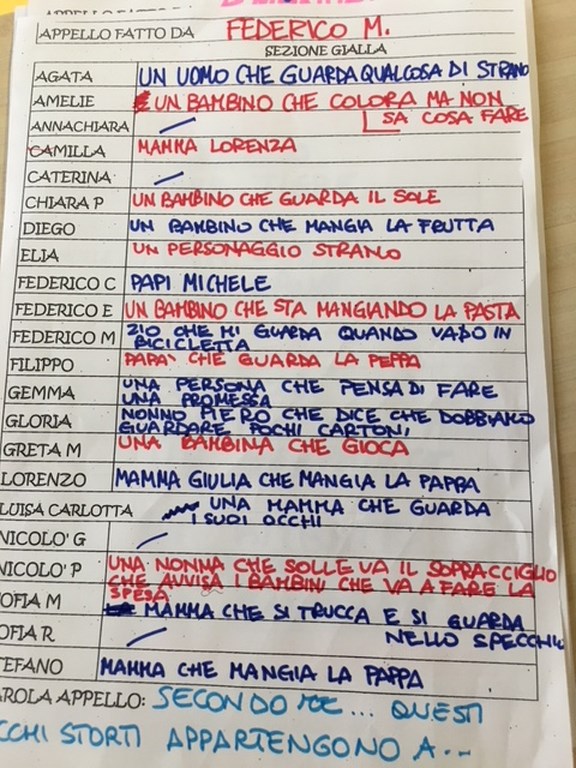 APPELLO FATTO DA FEDERICO M.
SEZIONE GIALLA
AGATA UN UOMO CHE GUARDA QUALCOSA DI STRANO
AMELIE UN BAMBINO CHE COLORA MA NON
SA COSA FARE
ANNACHIARA
CAMILLA MAMMA LORENZA
CATERINA
CHIARA P UN BAMBINO CHE GUARDA IL SOLE
DIEGO UN BAMBINO CHE MANGIA LA FRUTTA
ELIA UN PERSONAGGIO STRANO
FEDERICO C PAPI MICHELE
FEDERICO E UN BAMBINO CHE STA MANGIANDO LA PASTA
FEDERICO M ZIO CHE MI GUARDA QUANDO VADO IN
BICICLETTA
FILIPPO PAPA' CHE GUARDA LA PEPPA
GEMMA UNA PERSONA CHE PENSA DI FARE
UNA PROMESSA
GLORIA NONNO PIERO CHE DICE CHE DOBBIAMO
GUARDARE POCHI CARTONI
GRETA M UNA BAMBINA CHE GIOCA
LORENZO MAMMA GIULIA CHE MANGIA LA PAPPA
LUISA CARLOTTA UNA MAMMA CHE GUARDA
I SUOI OCCHI
NICOLO' G
NICOLO' P UNA NONNA CHE SOLLEVA IL SOPRACCIGLIO
CHE AVVISA I BAMBINI CHE VA A FARE LA
SPESA
OFIA M MAMMA CHE SI TRUCCA E SI GUARDA
NELLO SPECCHIO
OFIA R
TEFANO MAMMA CHE MANGIA LA PAPPA
AROLA APPELLO: SECONDO ME... QUESTI
CCHI STORTI APPARTENGONO A...